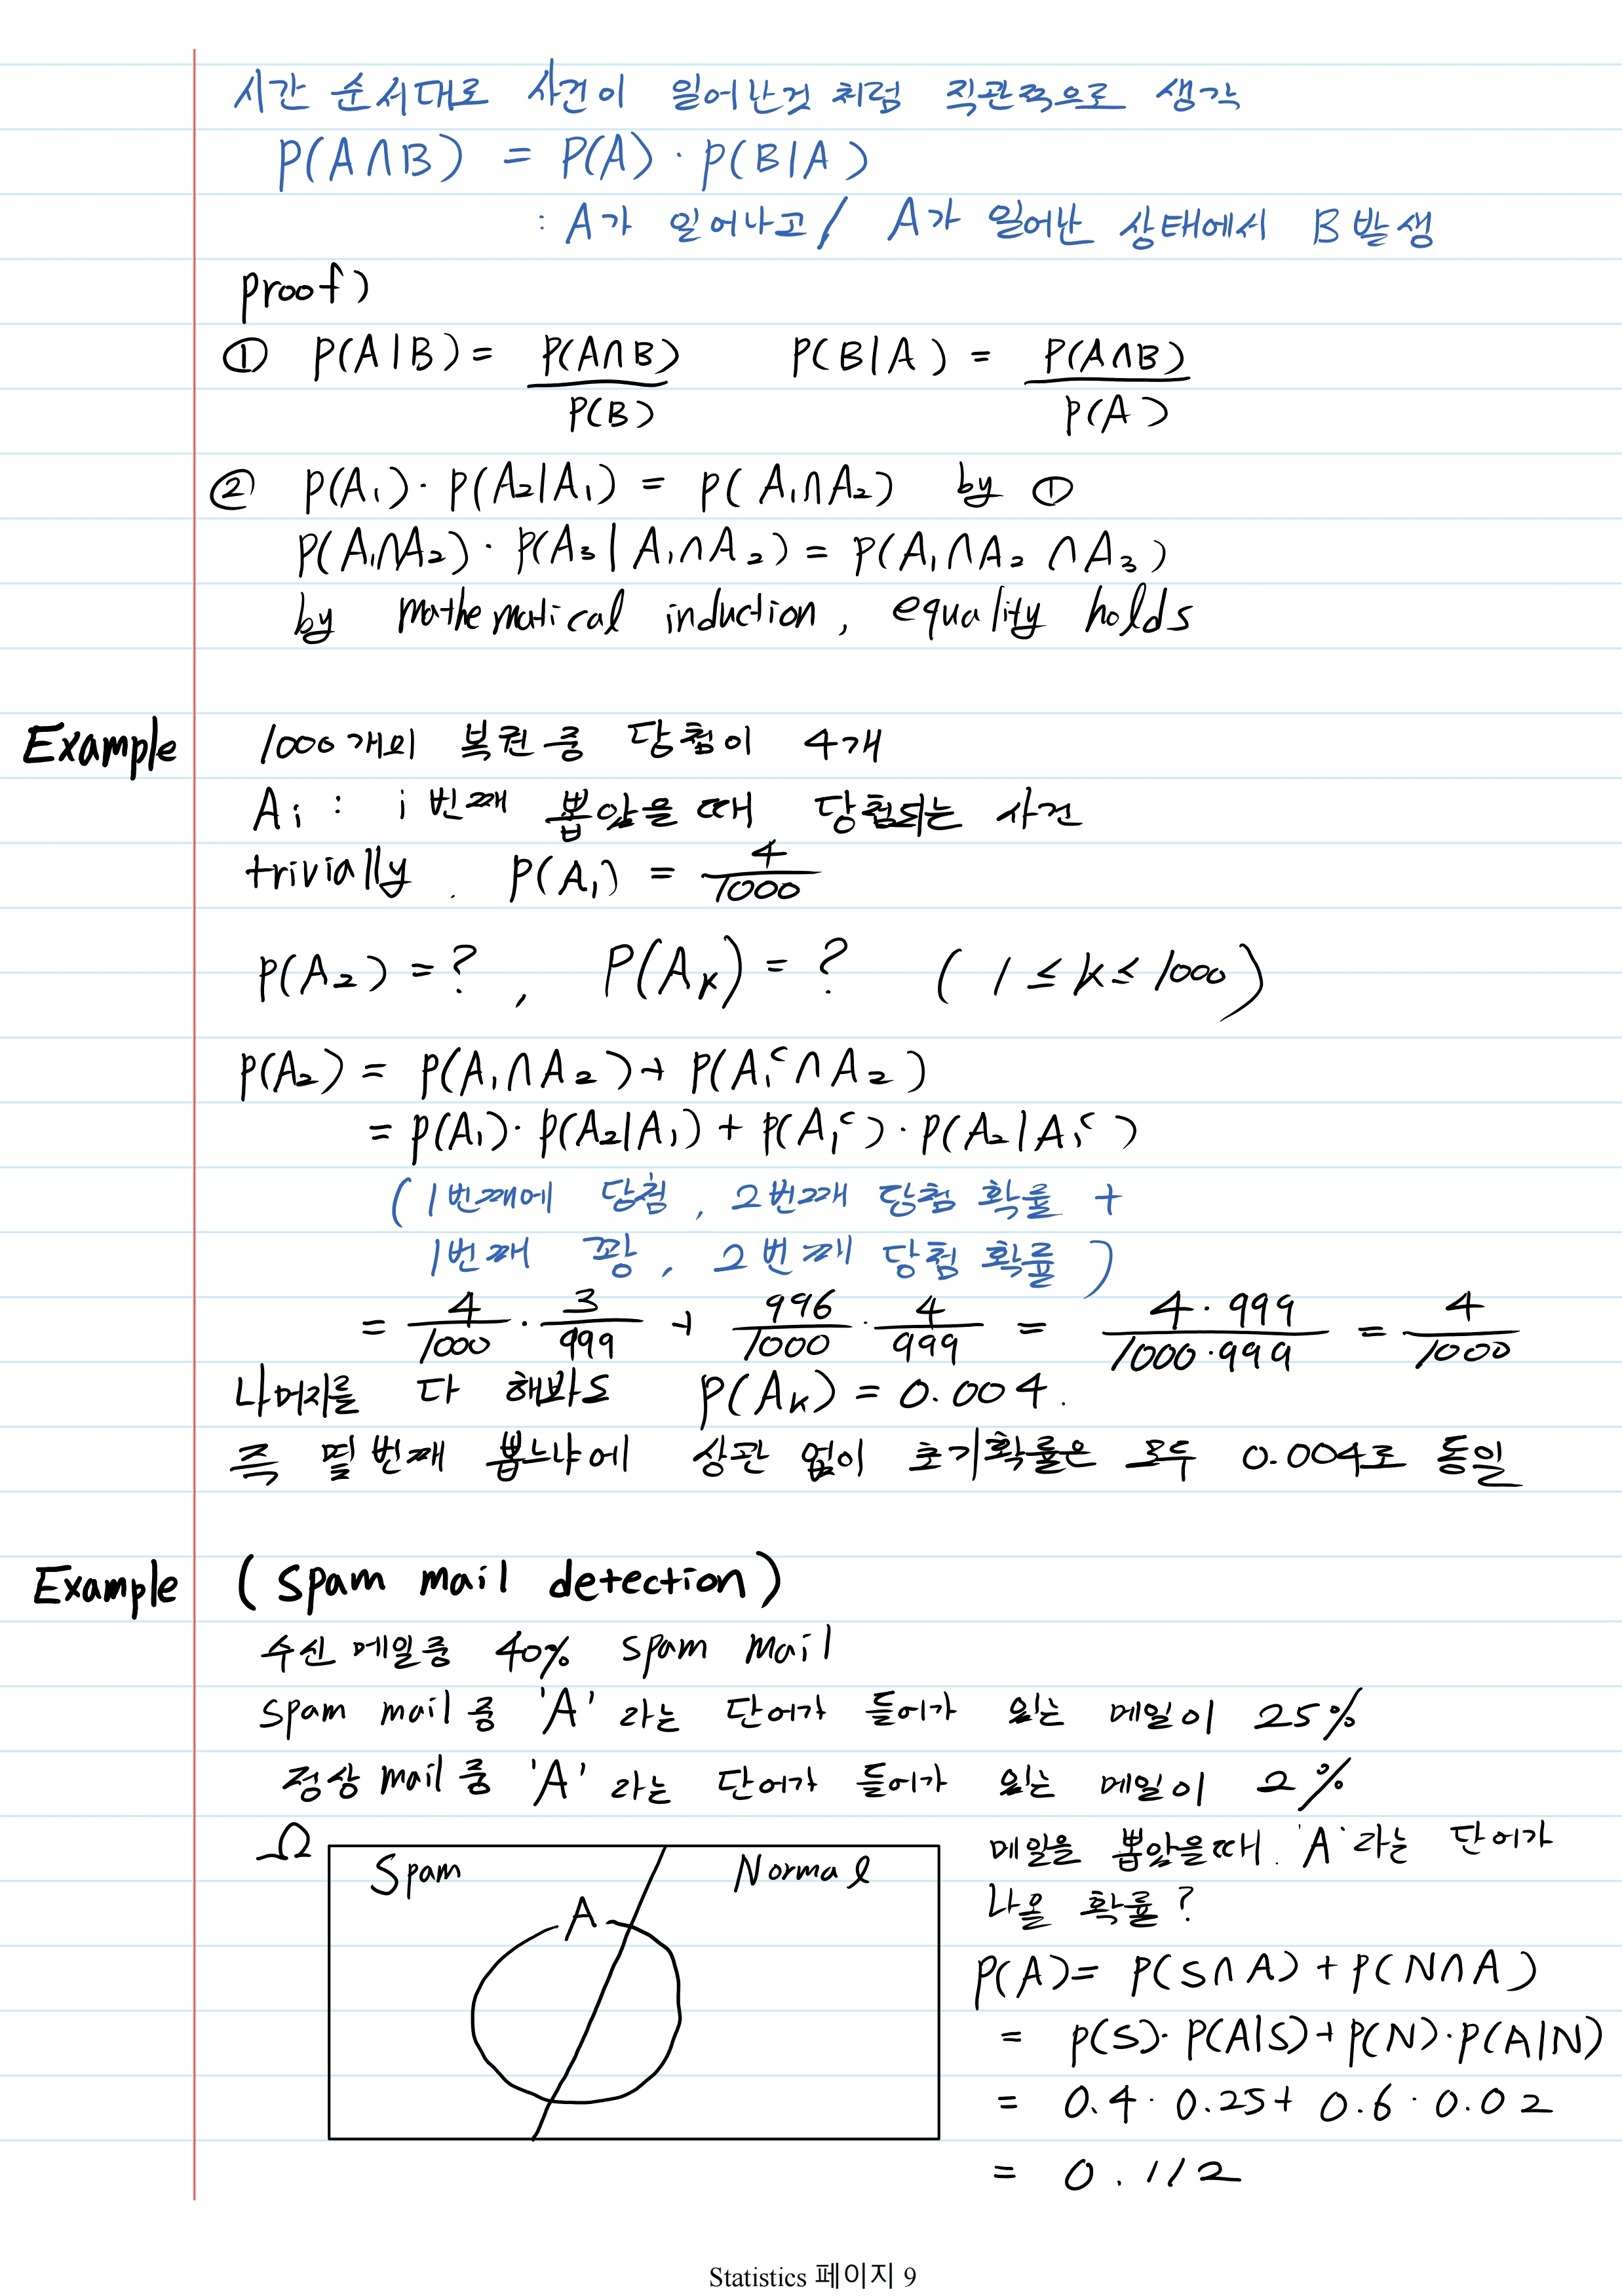 시간 순서대로 사건이 일어난것 처럼 직관적으로 생각
P(A∩B) = P(A)·P(B|A)
: A가 일어나고 / A가 일어난 상태에서 B 발생
proof)
① P(A|B) = P(A∩B)/P(B) P(B|A) = P(A∩B)/P(A)
② P(A₁)·P(A₂|A₁) = P(A₁∩A₂) by ①
P(A₁∩A₂)·P(A₃|A₁∩A₂) = P(A₁∩A₂∩A₃)
by mathematical induction, equality holds
Example 1000개의 복권 중 당첨이 4개
Aᵢ : i 번째 뽑았을 때 당첨되는 사건
trivially. P(A₁) = 4/1000
P(A₂) = ? , P(Aₖ) = ? (1 ≤ k ≤ 1000)
P(A₂) = P(A₁∩A₂) + P(A₁ᶜ∩A₂)
= P(A₁)·P(A₂|A₁) + P(A₁ᶜ)·P(A₂|A₁ᶜ)
(1번째에 당첨, 2번째 당첨 확률 +
1번째 꽝, 2번째 당첨 확률)
= 4/1000 · 3/999 + 996/1000 · 4/999 = 4·999/1000·999 = 4/1000
나머지를 다 해봐도 P(Aₖ) = 0.004.
즉 몇 번째 뽑느냐에 상관 없이 초기확률은 모두 0.004로 동일
Example (Spam mail detection)
수신 메일중 40% spam mail
spam mail 중 'A' 라는 단어가 들어가 있는 메일이 25%
정상 mail 중 'A' 라는 단어가 들어가 있는 메일이 2%
Ω
Spam Normal
A
메일을 뽑았을때. 'A' 라는 단어가
나올 확률?
P(A) = P(S∩A) + P(N∩A)
= P(S)·P(A|S) + P(N)·P(A|N)
= 0.4·0.25 + 0.6·0.02
= 0.112
Statistics 페이지 9